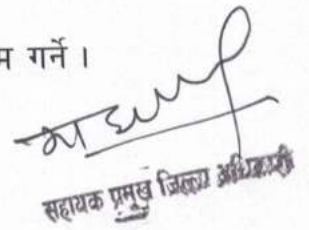 म गर्ने ।
सहायक प्रमुख जिल्ला अधिकारी